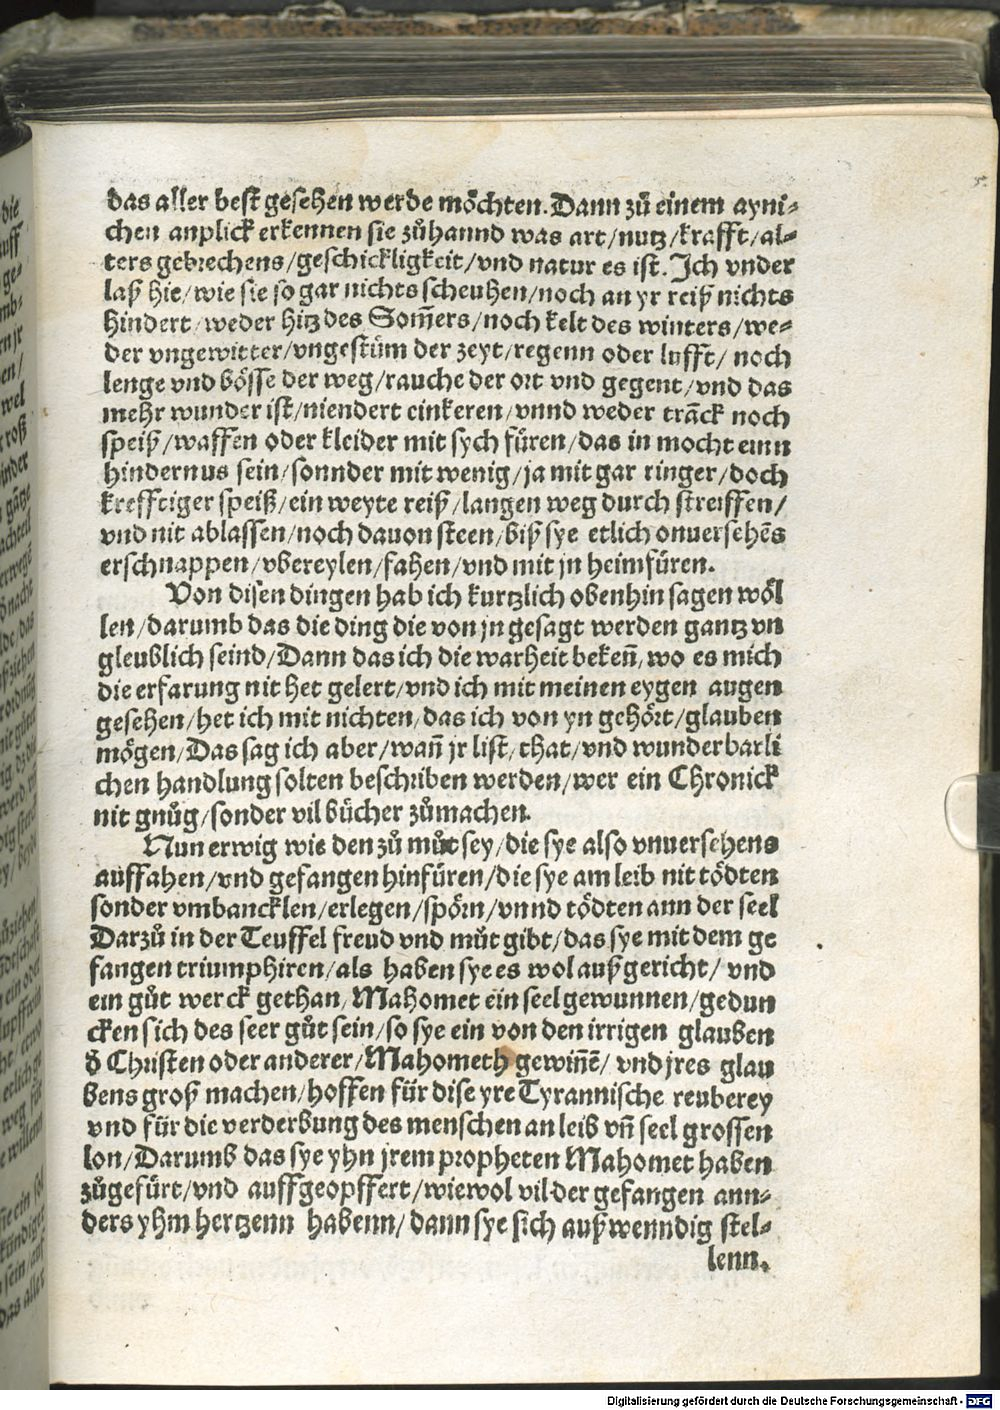 das aller best gesehen werde möchten. Dann zů einem ayni⸗
chen anplick erkennen sie zůhannd was art/nutz/krafft/al⸗
ters gebrechens/geschickligkeit/vnd natur es ist. Jch vnder
laß hie/wie sie so gar nichts scheuhen/noch an yr reiß nichts
hindert/weder hitz des Som̄ers/noch kelt des winters/we⸗
der vngewitter/vngestüm der zeyt/regenn oder lufft/ noch
lenge vnd bösse der weg/rauche der ort vnd gegent/vnd das
mehr wunder ist/niendert einkeren/vnnd weder trāck noch
speiß/waffen oder kleider mit sych füren/das in mocht einn
hindernus sein/sonnder mit wenig/ja mit gar ringer/doch
krefftiger speiß/ein weyte reiß/langen weg durch streiffen/
vnd nit ablassen/noch dauon steen/biß sye etlich onuersehēs
erschnappen/vbereylen/fahen/vnd mit jn heimfüren.
Von disen dingen hab ich kurtzlich obenhin sagen wöl
len/darumb das die ding die von jn gesagt werden gantz vn
gleublich seind/Dann das ich die warheit bekeñ/wo es mich
die erfarung nit het gelert/vnd ich mit meinen eygen augen
gesehen/het ich mit nichten/das ich von yn gehört/glauben
mögen/Das sag ich aber/wañ jr list/that/vnd wunderbarli
chen handlung solten beschriben werden/wer ein Chronick
nit gnůg/sonder vil bücher zůmachen.
Nun erwig wie den zů můt sey/die sye also vnuersehens
auffahen/vnd gefangen hinfüren/die sye am leib nit tödten
sonder vmbancklen/erlegen/spörn/vnnd tödten ann der seel
Darzů in der Teuffel freud vnd můt gibt/das sye mit dem ge
fangen triumphiren/als haben sye es wol außgericht/ vnd
ein gůt werck gethan/Mahomet ein seel gewunnen/gedun
cken sich des seer gůt sein/so sye ein von den irrigen glauben
d̄ Christen oder anderer/Mahometh gewiñē/ vnd jres glau
bens groß machen/hoffen für dise yre Tyrannische reuberey
vnd für die verderbung des menschen an leib vñ seel grossen
lon/Darumb das sye yhn jrem propheten Mahomet haben
zůgefürt/vnd auffgeopffert/wiewol vil der gefangen ann⸗
ders yhm hertzenn habenn/dann sye sich außwenndig stel⸗
lenn.
Digitalisierung gefördert durch die Deutsche Forschungsgemeinschaft - DFG